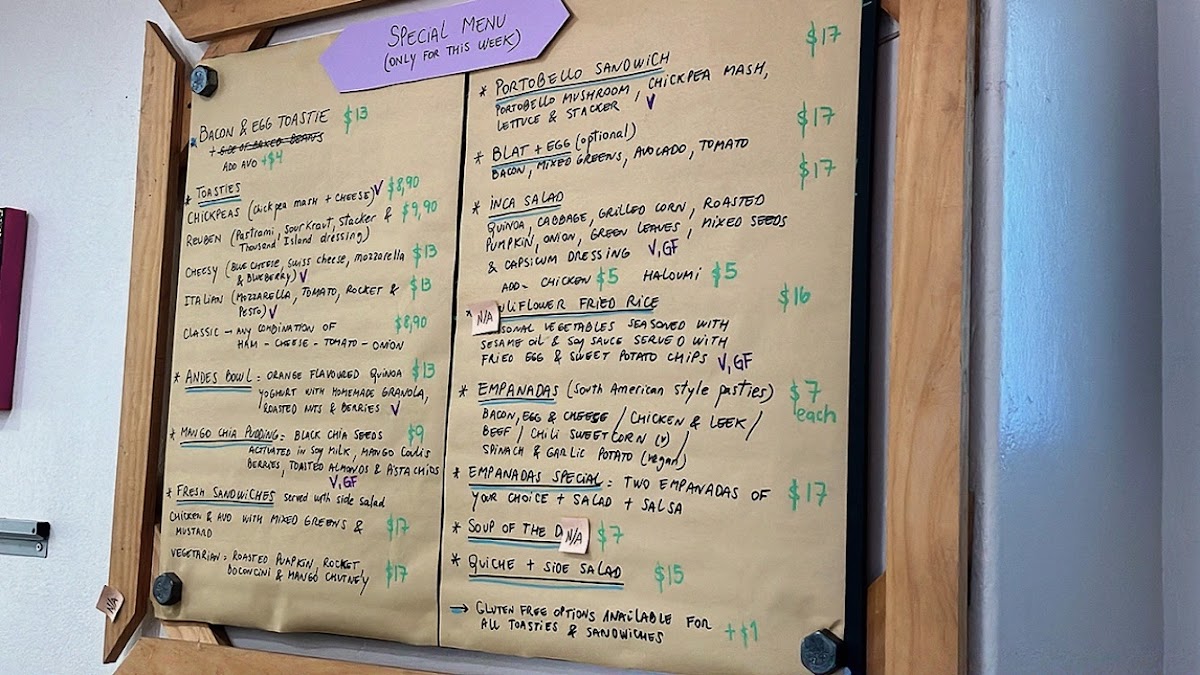 SPECIAL MENU
(ONLY FOR THIS WEEK)
* BACON & EGG TOASTIE $13
+ SIDE OF BAKED BEANS
ADD AVO +$4
* TOASTIES
CHICKPEAS (chickpea mash + CHEESE) V $8,90
REUBEN (Pastrami, Sourkraut, Stacker & $9,90
Thousand Island dressing)
CHEESY (BLUE CHEESE, SWISS CHEESE, MOZZARELLA $13
& BLUEBERRY) V
ITALIAN (MOZZARELLA, TOMATO, ROCKET & $13
PESTO) V
CLASSIC - ANY COMBINATION OF $8,90
HAM - CHEESE - TOMATO - ONION
* ANDES BOWL: ORANGE FLAVOURED QUINOA $13
YOGHURT WITH HOMEMADE GRANOLA,
ROASTED NUTS & BERRIES V
* MANGO CHIA PUDDING: BLACK CHIA SEEDS $9
ACTIVATED IN SOY MILK, MANGO COULIS
BERRIES, TOASTED ALMONDS &
V, GF
* FRESH SANDWICHES served with side salad
CHICKEN & AVO WITH MIXED GREENS & $17
MUSTARD
VEGETARIAN: ROASTED PUMPKIN, ROCKET, $17
BOCONCINI & MANGO CHUTNELY
N/A
* PORTOBELLO SANDWICH $17
PORTOBELLO MUSHROOM, CHICKPEA MASH,
LETTUCE & STACKER V
* BLAT + EGG (optional) $17
BACON, MIXED GREENS, AVOCADO, TOMATO
* INCA SALAD $17
QUINOA, CABBAGE, GRILLED CORN, ROASTED
PUMPKIN, ONION, GREEN LEAVES, MIXED SEEDS
& CAPSICUM DRESSING V, GF
ADD- CHICKEN $5 HALOUMI $5
* N/A ULIFLOWER FRIED RICE $16
SONAL VEGETABLES SEASONED WITH
SESAME OIL & SOY SAUCE SERVED WITH
FRIED EGG & SWEET POTATO CHIPS V, GF
* EMPANADAS (South American style pasties) $7 each
BACON, EGG & CHEESE / CHICKEN & LEEK /
BEEF / CHILI SWEETCORN (V) /
SPINACH & GARLIC POTATO (vegan)
* EMPANADAS SPECIAL: TWO EMPANADAS OF $17
YOUR CHOICE + SALAD + SALSA
* SOUP OF THE D N/A $7
* QUICHE + SIDE SALAD $15
→ GLUTEN FREE OPTIONS AVAILABLE FOR
ALL TOASTIES & SANDWICHES +$1